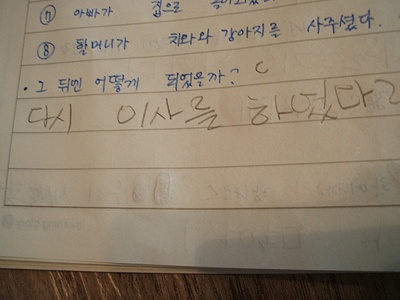 ⑦ 아빠가 집으로
⑧ 할머니가 치와와 강아지를 사주셨다.
· 그 뒤엔 어떻게 되었을까?
다시 이사를 하었다